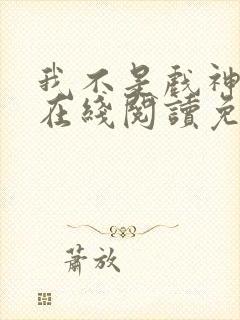 我不是戲神
在綫閱讀免
蕭放